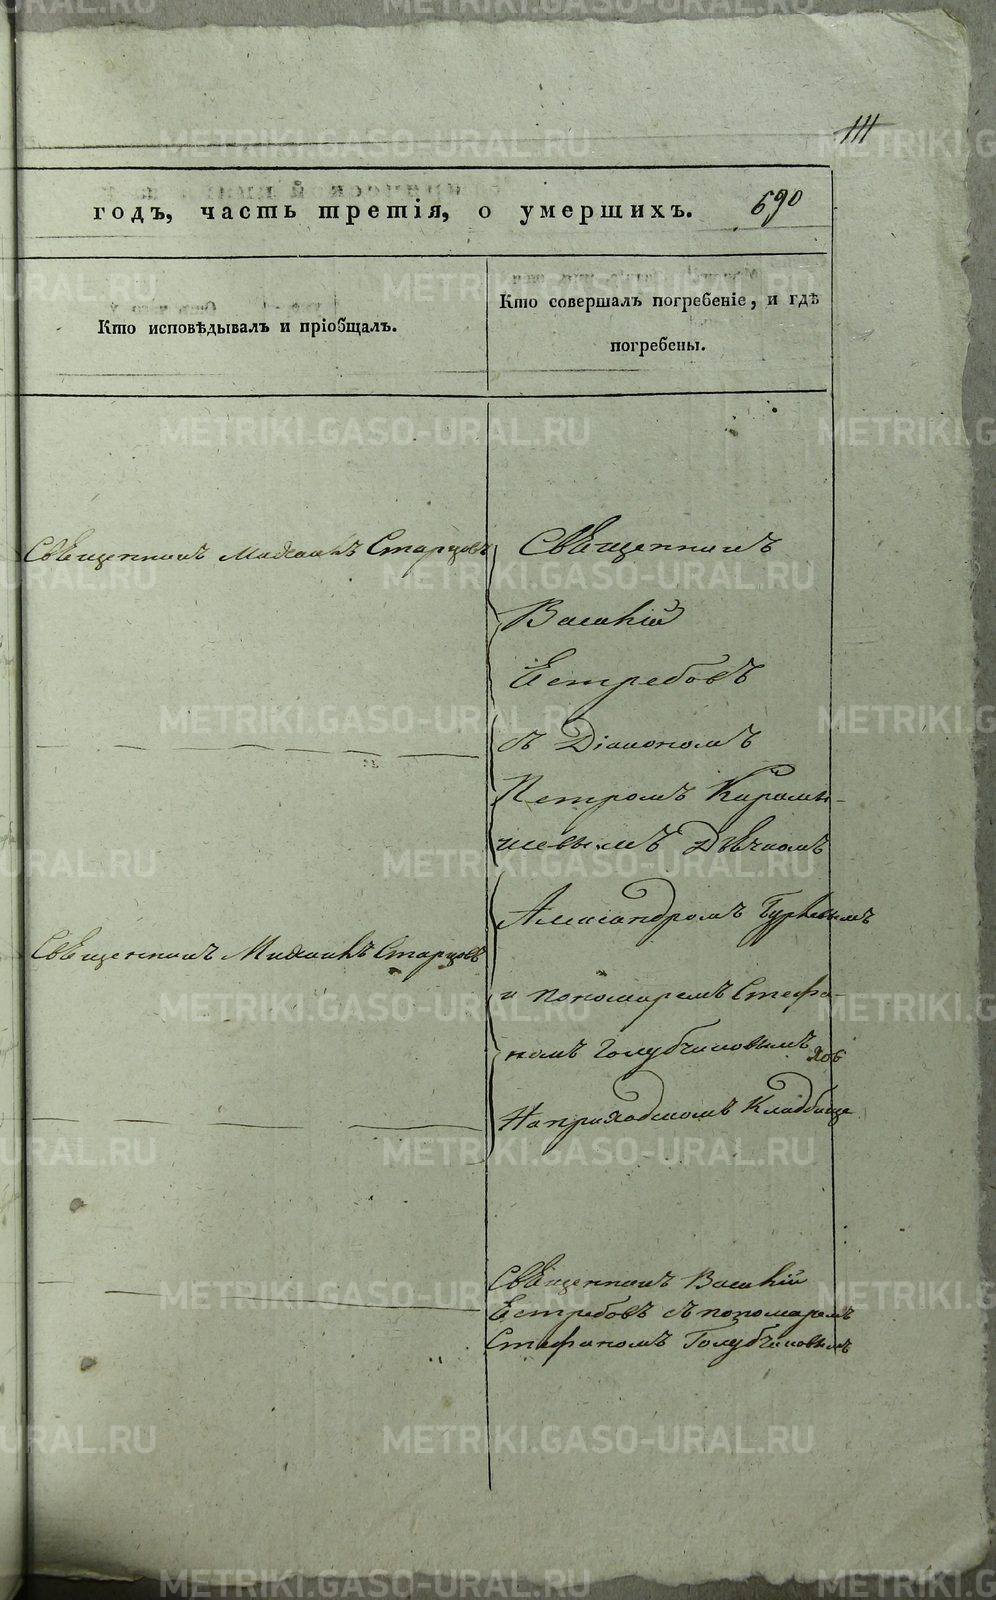 111
годъ, часть третія, о умершихъ. 690
Кто исповѣдывалъ и пріобщалъ.
Кто совершалъ погребеніе, и гдѣ
погребены.
Священникъ Михаилъ Старцовъ
Священникъ
Василій
Естребовъ
съ Діакономъ
Петромъ Карамы-
шевымъ Дьячкомъ
Александромъ Гурьевымъ
Священникъ Михаилъ Старцовъ
и пономаремъ Стефа-
номъ Голубчиковымъ
На приходскомъ Кладбище
Священникъ Василій
Естребовъ съ пономаремъ
Стефаномъ Голубчиковымъ
METRIKI.GASO-URAL.RU